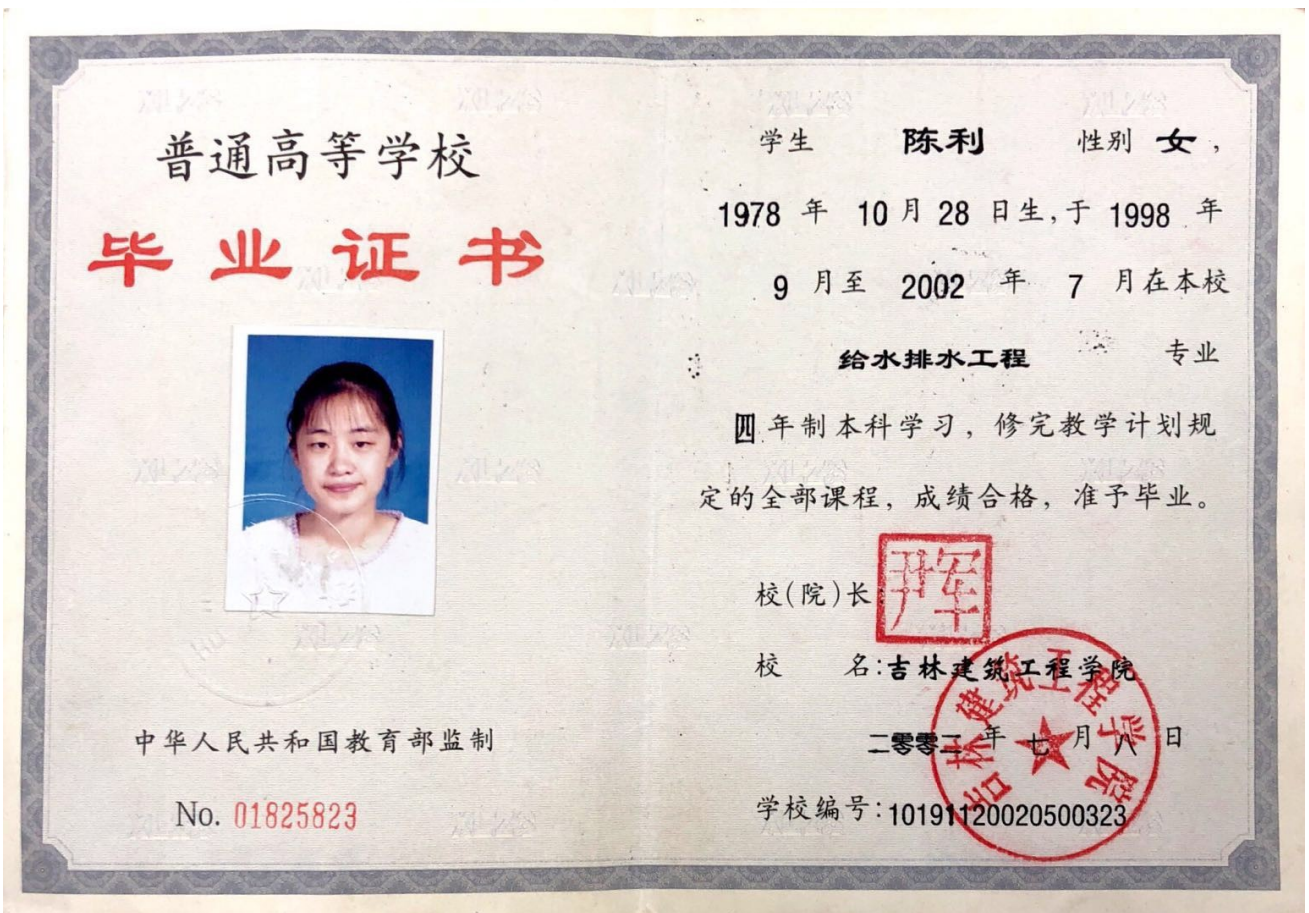 普通高等学校
毕业证书
中华人民共和国教育部监制
No. 01825823
学生 陈利 性别 女,
1978 年 10 月 28 日生,于 1998 年
9 月至 2002 年 7 月在本校
给水排水工程 专业
四年制本科学习,修完教学计划规
定的全部课程,成绩合格,准予毕业。
校(院)长
校 名:吉林建筑工程学院
二零零二 年 七 月 八 日
学校编号:10191120020500323
吉林建筑工程学院